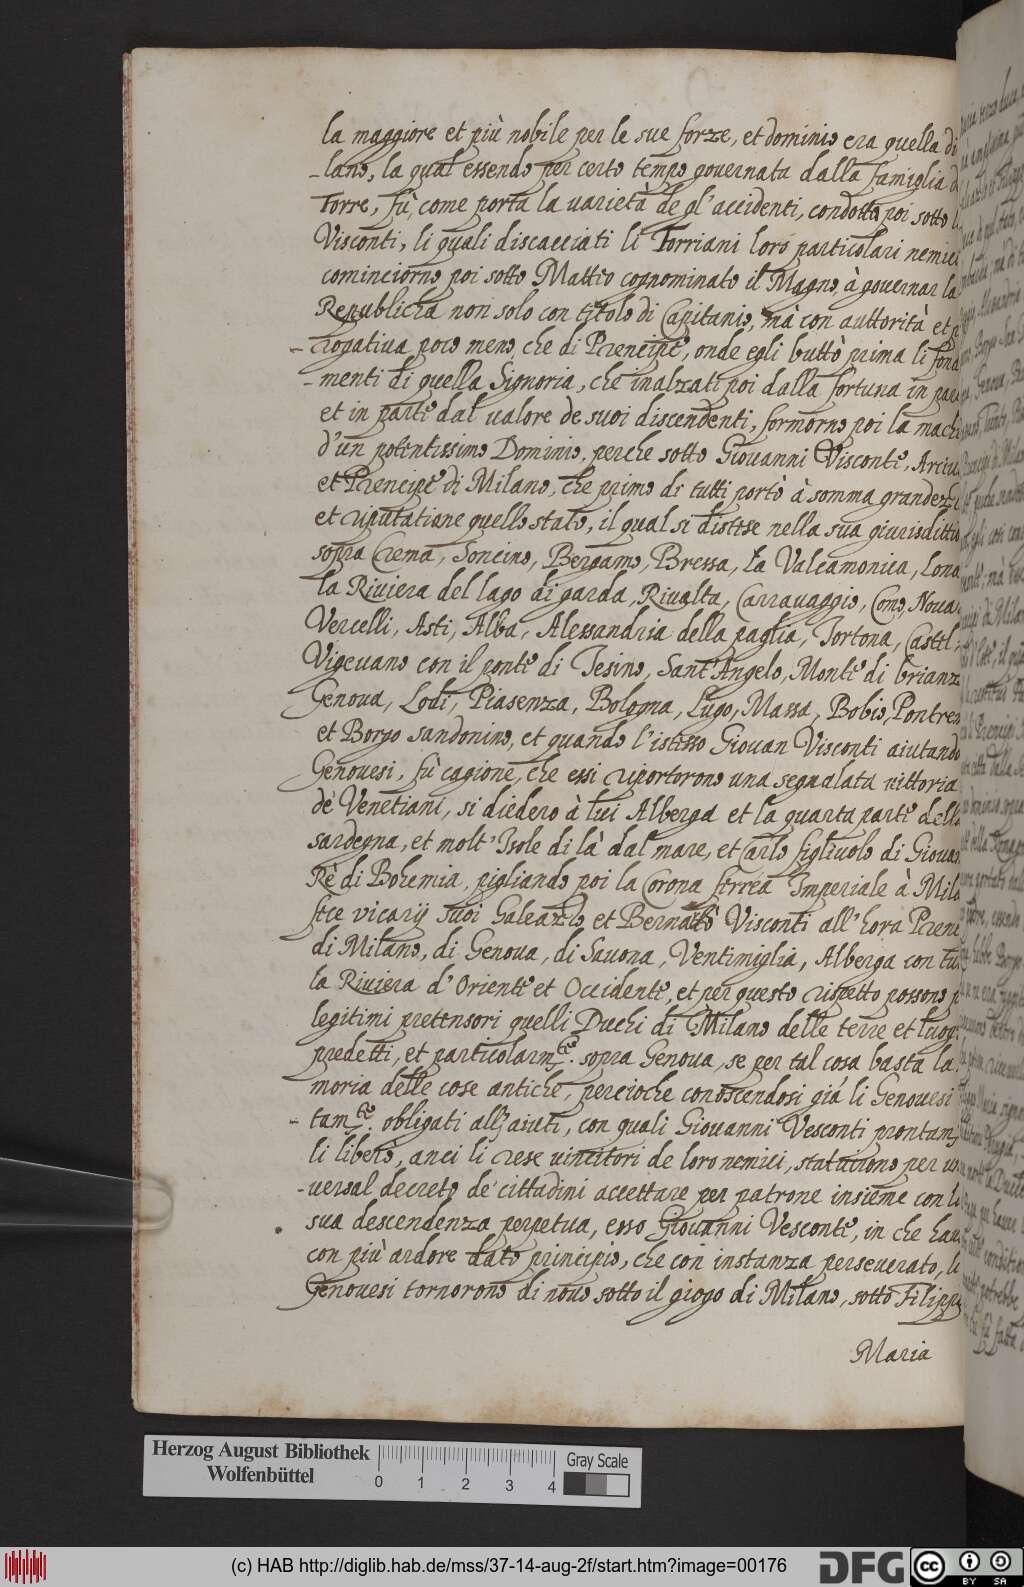 la maggiore et più nobile per le sue forze, et dominio era quella di
-lano, la qual essendo per certo tempo gouernata dalla famiglia d
Torre, fù, come porta la uarietà de gl'accidenti, condotta poi sotto l
Visconti, li quali discacciati li Torriani loro particolari nemici
cominciorno poi sotto Mattio cognominato il Magno, à gouernar la
Republicha non solo con titolo di Capitanio, mà con auttorità et p
-rogatiua poco meno, che di Prencipe, onde egli buttò prima li fonda
-menti di quella Signoria, che inalzati poi dalla fortuna in par
et in parte dal ualore de suoi discendenti, formorno poi la mach
d'un potentissimo Dominio, perche sotto Giouanni Visconte, Arciu
et Prencipe di Milano, che primo di tutti portò à somma grandezz
et riputatione quello stato, il qual si distese nella sua giurisditti
sopra Crema, Soncino, Bergamo, Bressa, la Valcamonica, Lona
la Riuiera del lago di garda, Riualta, Carrauaggio, Como, Noua
Vercelli, Asti, Alba, Alessandria della paglia, Tortona, Castel
Vigeuano con il ponte di Tesino, Sant'Angelo, Monte di brianz
Genoua, Lodi, Piasenza, Bologna, Lugo, Massa, Bobio, Pontrem
et Borgo sandonino, et quando l'istesso Giouan Visconti aiutando
Genouesi, fù cagione, che essi riportorono una segnalata uittoria
de' Venetiani, si diedero à lui Alberga et la quarta parte dell
sardegna, et molt'Isole di là dal mare, et Carlo figliuolo di Giouan
Rè di Bohemia, pigliando poi la Corona ferrea Imperiale à Mila
fece vicarij suoi Galeazzo et Bernabò Visconti all'hora Prenc
di Milano, di Genoua, di Sauona, Ventimiglia, Alberga con tut
la Riuiera d'Oriente et Occidente, et per questo rispetto possono p
legitimi prettensori quelli Duchi di Milano delle terre et luoghi
predetti, et particolarm.te sopra Genoua, se per tal cosa basta la
moria delle cose antiche, percioche conoscendosi già li Genouesi
-tam.te obligati all'aiuti, con quali Giouanni Vesconti prontam
li liberò, anci li rese uincitori de loro nemici, statuirono per un
-uersal decreto de' cittadini accettare per patrone insieme con la
sua descendenza perpetua, esso Giouanni Vesconte, in che hau
con più ardore dato principio, che con instanza perseuerato, li
Genouesi tornorono di nouo sotto il giogo di Milano, sotto Filippo
Maria
Herzog August Bibliothek
Wolfenbüttel
0 1 2 3 4
Gray Scale
(c) HAB http://diglib.hab.de/mss/37-14-aug-2f/start.htm?image=00176
DFG
cc BY SA